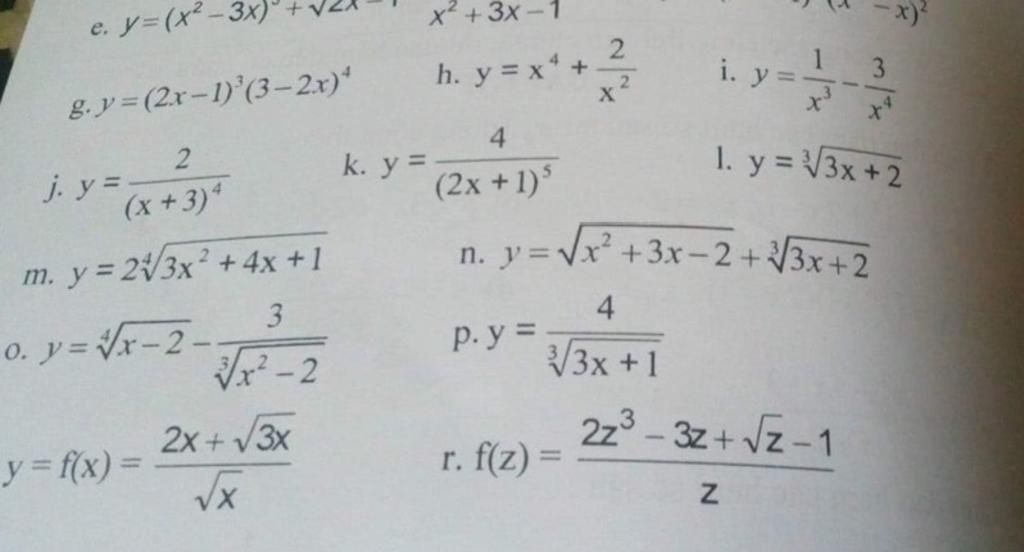 e. y=(x² – 3x)³ + √2x – 1   x² + 3x – 1   (x – x)²
g. y = (2x – 1)³(3 – 2x)⁴   h. y = x⁴ + 2/x²   i. y = 1/x³ – 3/x⁴
j. y = 2/(x + 3)⁴   k. y = 4/(2x + 1)⁵   l. y = ∛(3x + 2)
m. y = 2∜(3x² + 4x + 1)   n. y = √(x² + 3x – 2) + ∛(3x + 2)
o. y = ∜(x – 2) – 3/∛(x² – 2)   p. y = 4/∛(3x + 1)
y = f(x) = (2x + √3x)/√x   r. f(z) = (2z³ – 3z + √z – 1)/z